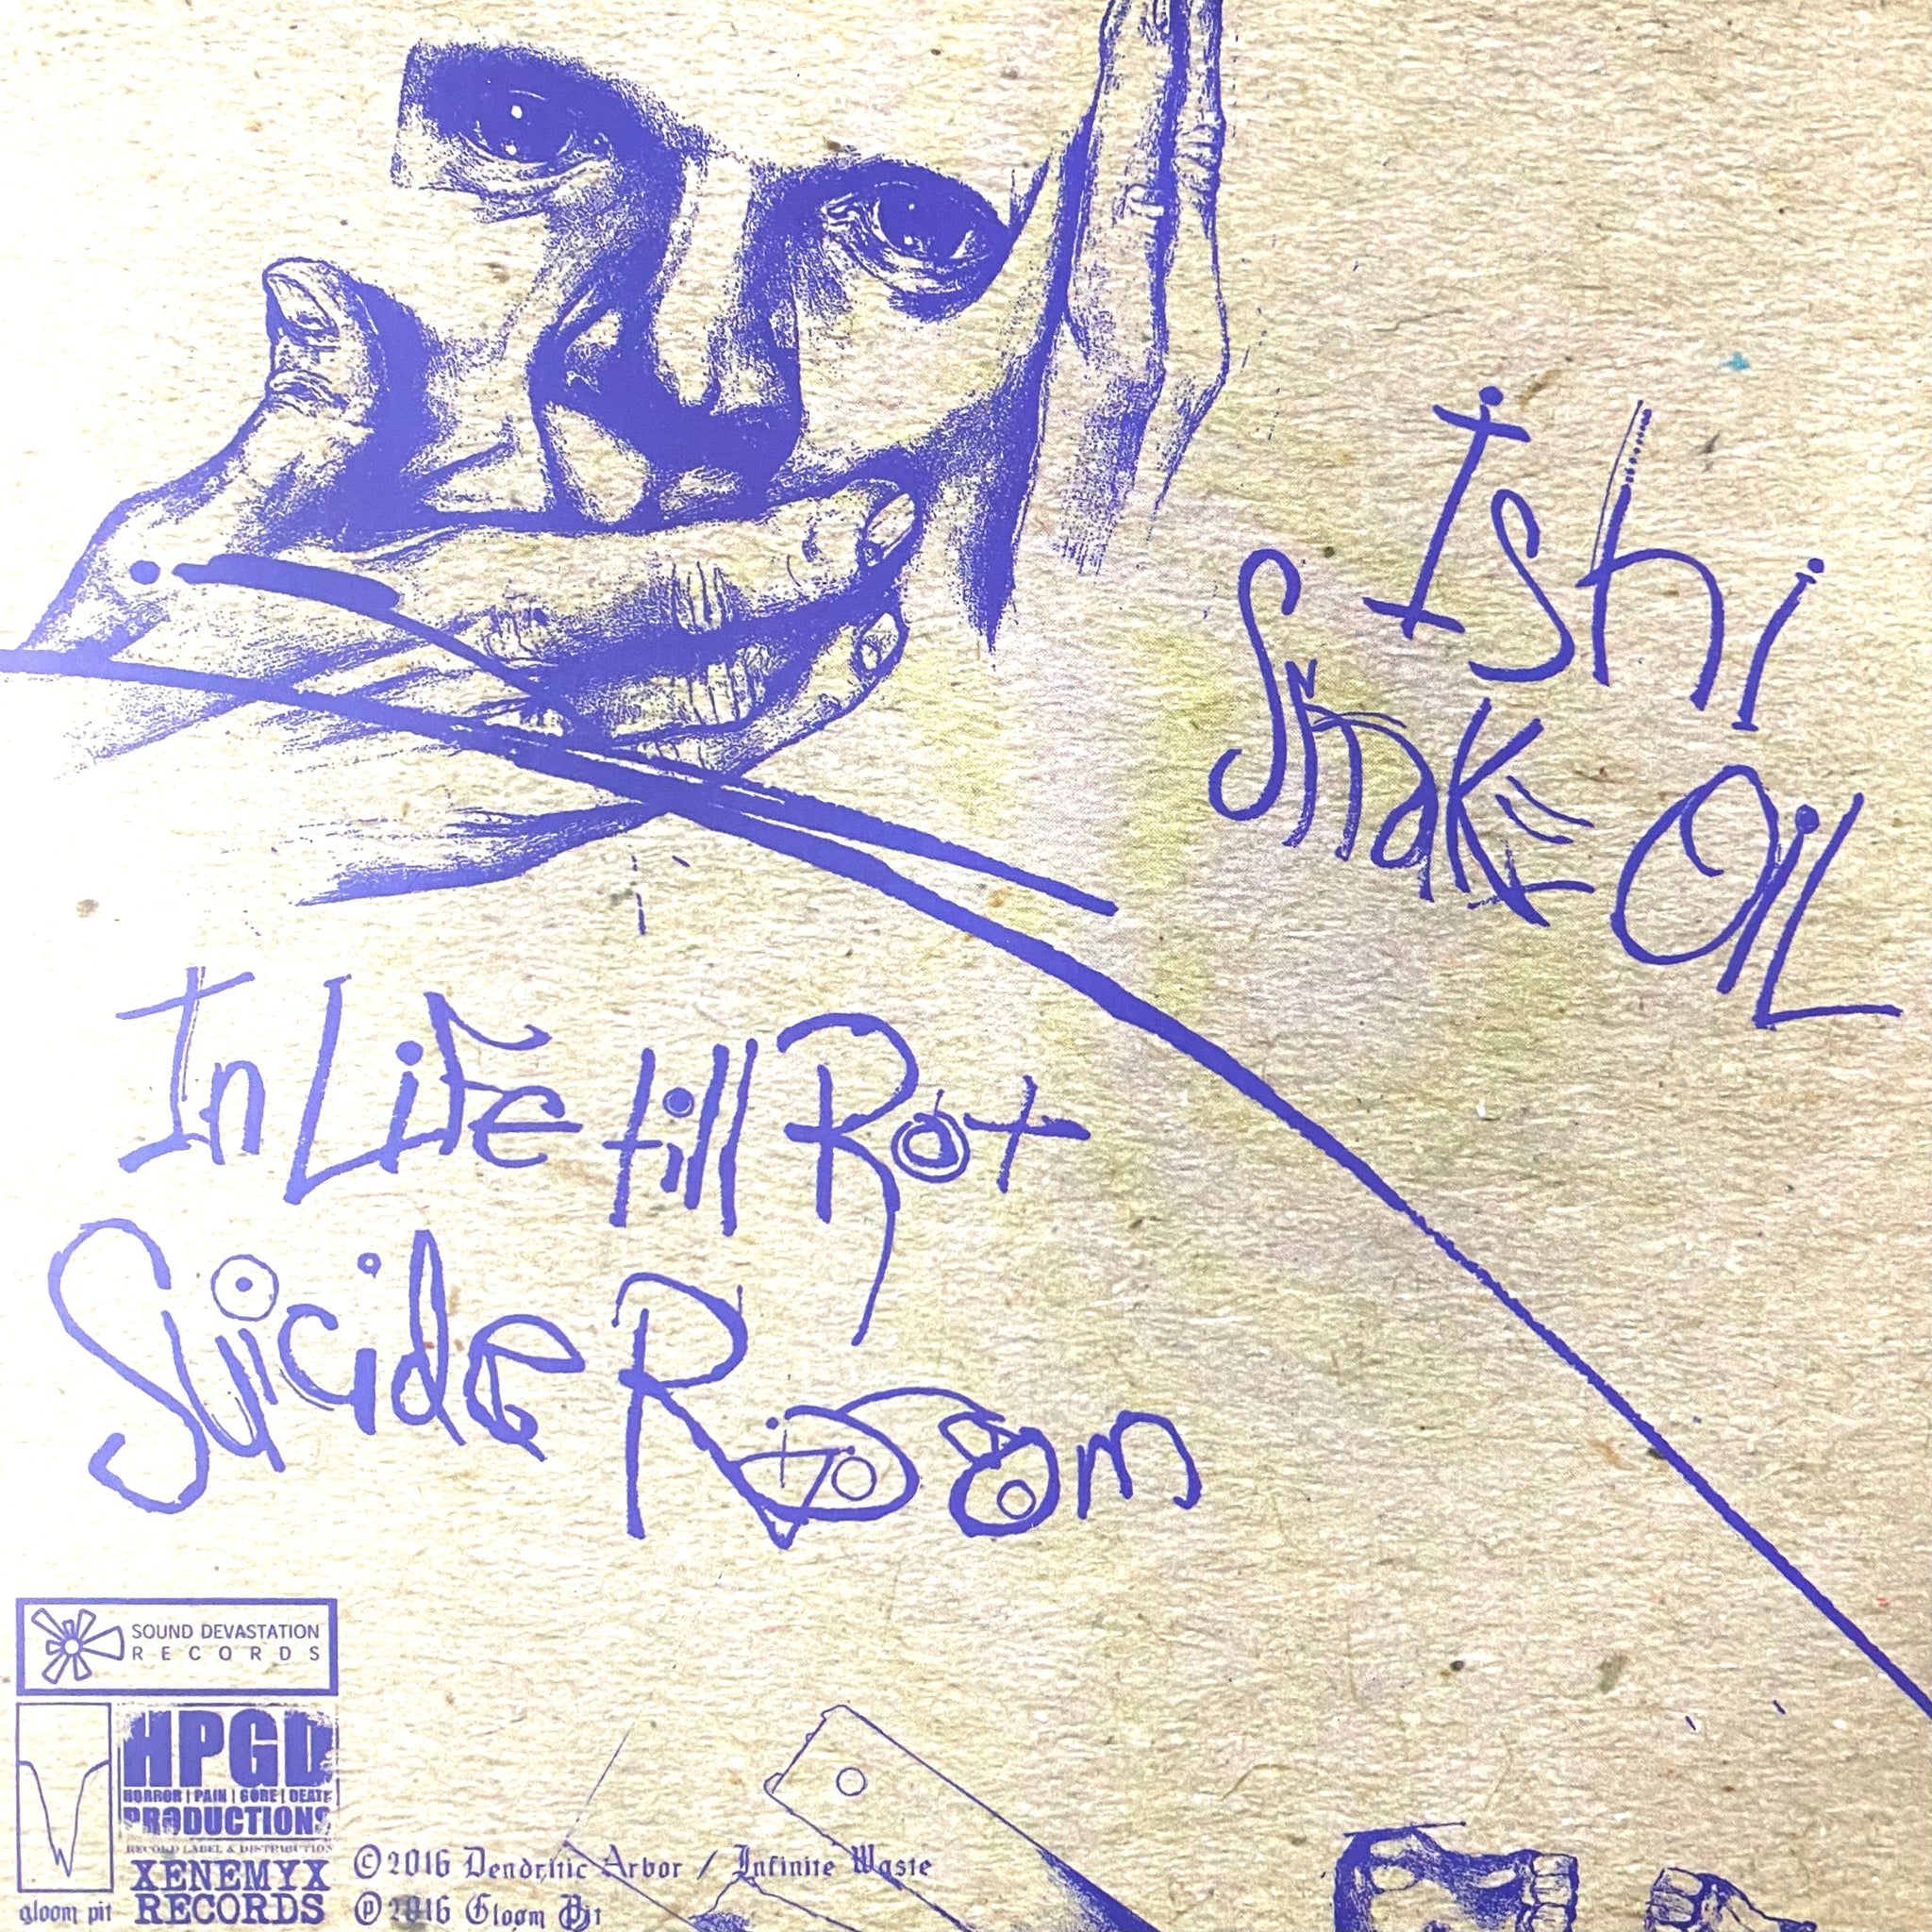 Ishi
Snake Oil
In Life till Rot
Suicide Room
SOUND DEVASTATION
RECORDS
HPGD
HORROR | PAIN | GORE | DEATH
PRODUCTIONS
RECORD LABEL & DISTRIBUTION
XENEMYX
RECORDS
gloom pit
©2016 Dendritic Arbor / Infinite Waste
℗2016 Gloom Pit